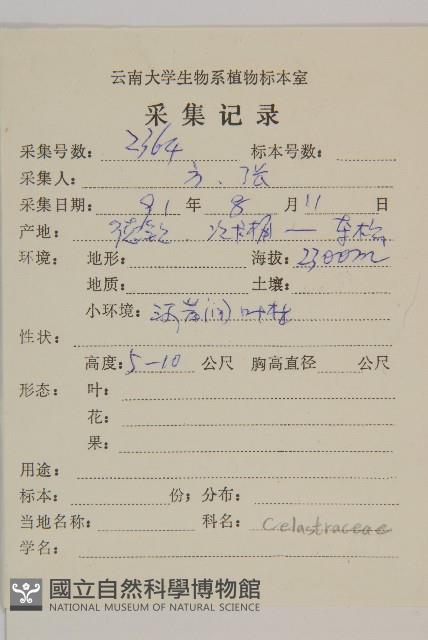 云南大学生物系植物标本室
采集记录
采集号数： 2364 标本号数：
采集人： 方、张
采集日期： 81 年 8 月 11 日
产地： 德钦、 — 车
环境： 地形： 海拔： 2300m
地质： 土壤：
小环境： 河岸
性状：
高度： 5-10 公尺 胸高直径 公尺
形态： 叶：
花：
果：
用途：
标本： 份； 分布：
当地名称： 科名： Celastraceae
学名：
國立自然科學博物館
NATIONAL MUSEUM OF NATURAL SCIENCE